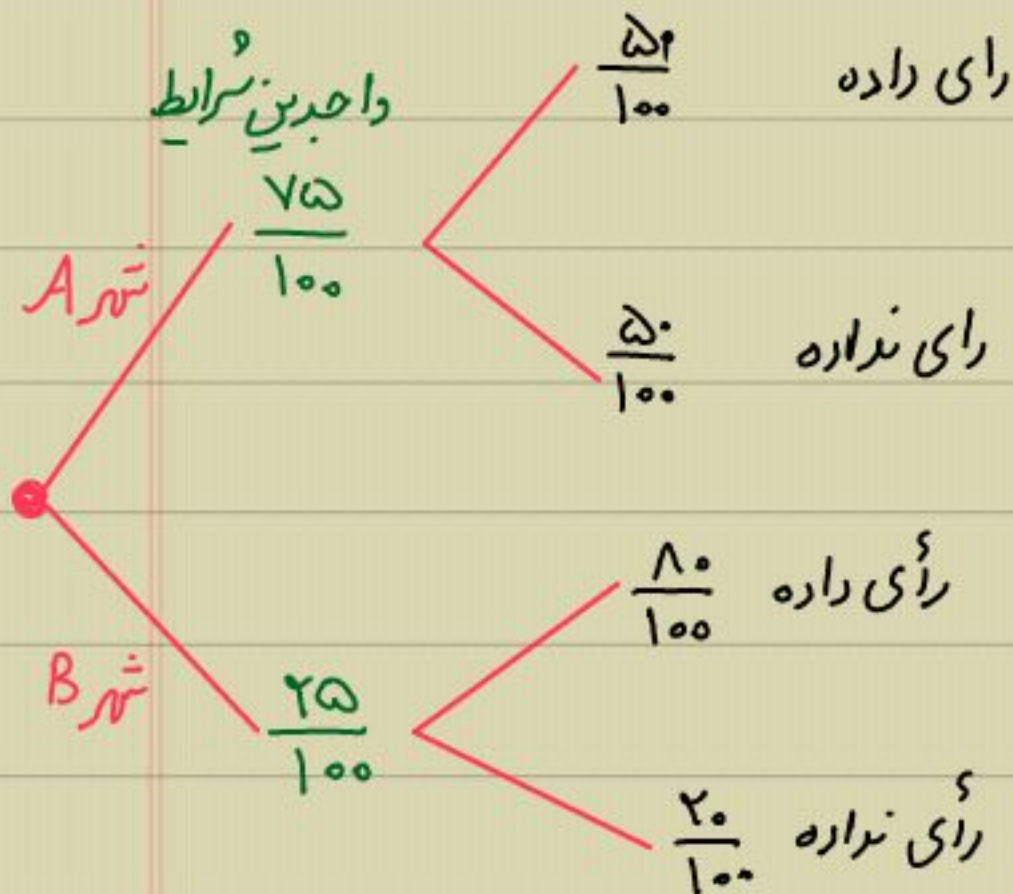 واجدین شرایط
شهر A
۷۵/۱۰۰
۵۰/۱۰۰ رای داده
۵۰/۱۰۰ رای نداده
شهر B
۲۵/۱۰۰
۸۰/۱۰۰ رأی داده
۲۰/۱۰۰ رأی نداده